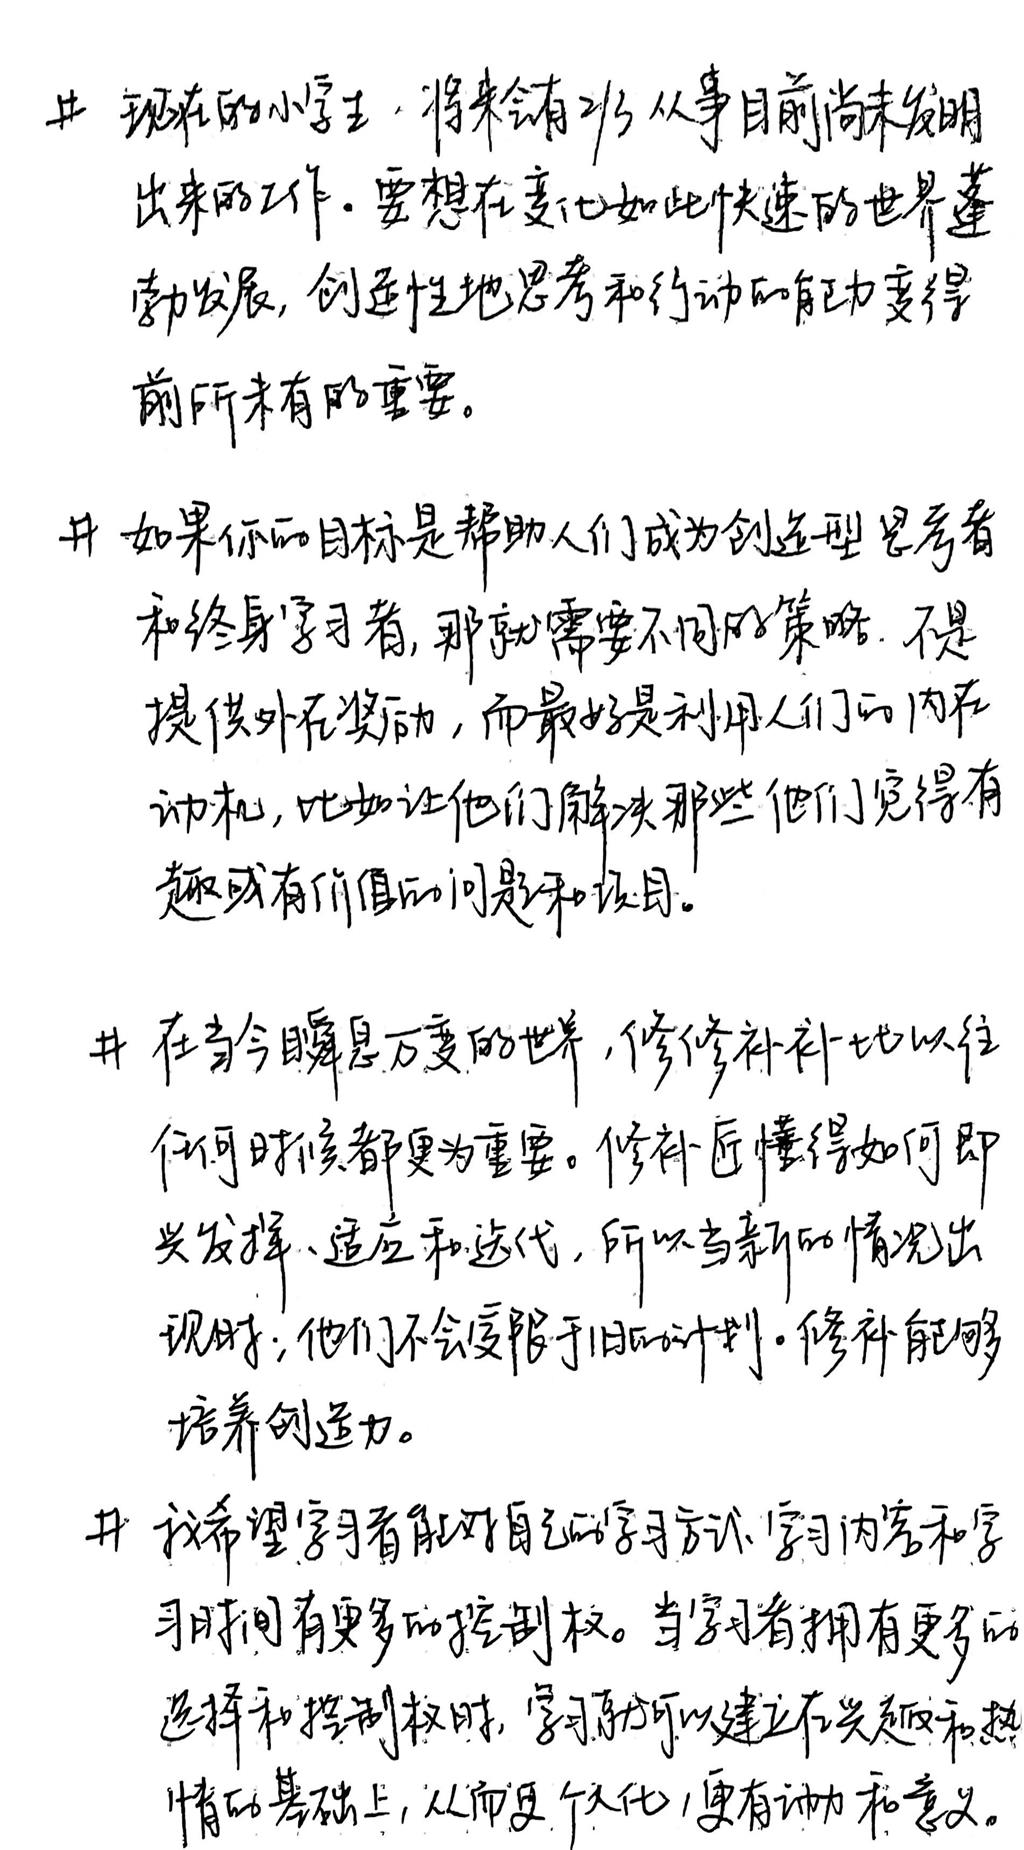 # 现在的小学生，将来会有2/3从事目前尚未发明
出来的工作。要想在变化如此快速的世界蓬
勃发展，创造性地思考和行动的能力变得
前所未有的重要。
# 如果你的目标是帮助人们成为创造型思考者
和终身学习者，那就需要不同的策略．不是
提供外在奖励，而最好是利用人们的内在
动机，比如让他们解决那些他们觉得有
趣或有价值的问题和项目。
# 在当今瞬息万变的世界，修修补补比以往
任何时候都更为重要。修补匠懂得如何即
兴发挥、适应和迭代，所以当新的情况出
现时，他们不会受限于旧的计划。修补能够
培养创造力。
# 我希望学习者能对自己的学习方式、学习内容和学
习时间有更多的控制权。当学习者拥有更多的
选择和控制权时，学习就可以建立在兴趣和热
情的基础上，从而更个人化，更有动力和意义。